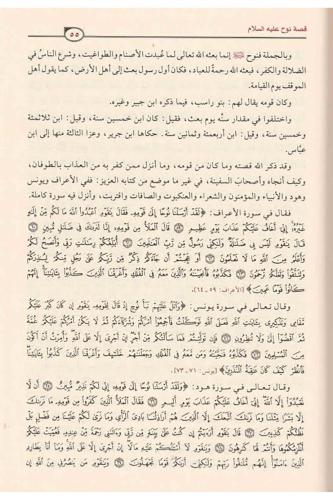 قصة نوح عليه السلام
٥٥
وبالجملة فنوح ﷺ إنما بعثه الله تعالى لما عُبدت الأصنام والطواغيت، وشرع الناسُ في
الضلالة والكفر، فبعثه الله رحمةً للعباد، فكان أول رسول بعث إلى أهل الأرض، كما يقول أهل
الموقف يوم القيامة.
وكان قومه يقال لهم: بنو راسب، فيما ذكره ابن جبير وغيره.
واختلفوا في مقدار سنّه يوم بعث، فقيل: كان ابن خمسين سنة، وقيل: ابن ثلاثمئة
وخمسين سنة، وقيل: ابن أربعمئة وثمانين سنة. حكاها ابن جرير، وعزا الثالثة منها إلى ابن
عبّاس.
وقد ذكر الله قصته وما كان من قومه، وما أنزل ممن كفر به من العذاب بالطوفان،
وكيف أنجاه وأصحاب السفينة، في غير ما موضع من كتابه العزيز: ففي الأعراف ويونس
وهود والأنبياء والمؤمنون والشعراء والعنكبوت والصافات واقتربت، وأنزل فيه سورة كاملة.
فقال في سورة الأعراف: ﴿لَقَدْ أَرْسَلْنَا نُوحًا إِلَىٰ قَوْمِهِ فَقَالَ يَٰقَوْمِ ٱعْبُدُوا۟ ٱللَّهَ مَا لَكُم مِّنْ إِلَٰهٍ
غَيْرُهُۥٓ إِنِّىٓ أَخَافُ عَلَيْكُمْ عَذَابَ يَوْمٍ عَظِيمٍ ۝ قَالَ ٱلْمَلَأُ مِن قَوْمِهِۦٓ إِنَّا لَنَرَىٰكَ فِى ضَلَٰلٍ مُّبِينٍ ۝
قَالَ يَٰقَوْمِ لَيْسَ بِى ضَلَٰلَةٌ وَلَٰكِنِّى رَسُولٌ مِّن رَّبِّ ٱلْعَٰلَمِينَ ۝ أُبَلِّغُكُمْ رِسَٰلَٰتِ رَبِّى وَأَنصَحُ لَكُمْ
وَأَعْلَمُ مِنَ ٱللَّهِ مَا لَا تَعْلَمُونَ ۝ أَوَعَجِبْتُمْ أَن جَآءَكُمْ ذِكْرٌ مِّن رَّبِّكُمْ عَلَىٰ رَجُلٍ مِّنكُمْ لِيُنذِرَكُمْ
وَلِتَتَّقُوا۟ وَلَعَلَّكُمْ تُرْحَمُونَ ۝ فَكَذَّبُوهُ فَأَنجَيْنَٰهُ وَٱلَّذِينَ مَعَهُۥ فِى ٱلْفُلْكِ وَأَغْرَقْنَا ٱلَّذِينَ كَذَّبُوا۟ بِـَٔايَٰتِنَآ إِنَّهُمْ
كَانُوا۟ قَوْمًا عَمِينَ﴾ [الأعراف: ٥٩ـ٦٤].
وقال تعالى في سورة يونس: ﴿وَٱتْلُ عَلَيْهِمْ نَبَأَ نُوحٍ إِذْ قَالَ لِقَوْمِهِۦ يَٰقَوْمِ إِن كَانَ كَبُرَ عَلَيْكُم
مَّقَامِى وَتَذْكِيرِى بِـَٔايَٰتِ ٱللَّهِ فَعَلَى ٱللَّهِ تَوَكَّلْتُ فَأَجْمِعُوٓا۟ أَمْرَكُمْ وَشُرَكَآءَكُمْ ثُمَّ لَا يَكُنْ أَمْرُكُمْ عَلَيْكُمْ غُمَّةً
ثُمَّ ٱقْضُوٓا۟ إِلَىَّ وَلَا تُنظِرُونِ ۝ فَإِن تَوَلَّيْتُمْ فَمَا سَأَلْتُكُم مِّنْ أَجْرٍ إِنْ أَجْرِىَ إِلَّا عَلَى ٱللَّهِ وَأُمِرْتُ أَنْ أَكُونَ
مِنَ ٱلْمُسْلِمِينَ ۝ فَكَذَّبُوهُ فَنَجَّيْنَٰهُ وَمَن مَّعَهُۥ فِى ٱلْفُلْكِ وَجَعَلْنَٰهُمْ خَلَٰٓئِفَ وَأَغْرَقْنَا ٱلَّذِينَ كَذَّبُوا۟ بِـَٔايَٰتِنَا
فَٱنظُرْ كَيْفَ كَانَ عَٰقِبَةُ ٱلْمُنذَرِينَ﴾ [يونس: ٧١ـ٧٣].
وقال تعالى في سورة هود: ﴿وَلَقَدْ أَرْسَلْنَا نُوحًا إِلَىٰ قَوْمِهِۦٓ إِنِّى لَكُمْ نَذِيرٌ مُّبِينٌ ۝ أَن لَّا
تَعْبُدُوٓا۟ إِلَّا ٱللَّهَ إِنِّىٓ أَخَافُ عَلَيْكُمْ عَذَابَ يَوْمٍ أَلِيمٍ ۝ فَقَالَ ٱلْمَلَأُ ٱلَّذِينَ كَفَرُوا۟ مِن قَوْمِهِۦ مَا نَرَىٰكَ
إِلَّا بَشَرًا مِّثْلَنَا وَمَا نَرَىٰكَ ٱتَّبَعَكَ إِلَّا ٱلَّذِينَ هُمْ أَرَاذِلُنَا بَادِىَ ٱلرَّأْىِ وَمَا نَرَىٰ لَكُمْ عَلَيْنَا مِن فَضْلٍۭ بَلْ
نَظُنُّكُمْ كَٰذِبِينَ ۝ قَالَ يَٰقَوْمِ أَرَءَيْتُمْ إِن كُنتُ عَلَىٰ بَيِّنَةٍ مِّن رَّبِّى وَءَاتَىٰنِى رَحْمَةً مِّنْ عِندِهِۦ فَعُمِّيَتْ عَلَيْكُمْ
أَنُلْزِمُكُمُوهَا وَأَنتُمْ لَهَا كَٰرِهُونَ ۝ وَيَٰقَوْمِ لَآ أَسْـَٔلُكُمْ عَلَيْهِ مَالًا إِنْ أَجْرِىَ إِلَّا عَلَى ٱللَّهِ وَمَآ أَنَا۠ بِطَارِدِ
ٱلَّذِينَ ءَامَنُوٓا۟ إِنَّهُم مُّلَٰقُوا۟ رَبِّهِمْ وَلَٰكِنِّىٓ أَرَىٰكُمْ قَوْمًا تَجْهَلُونَ ۝ وَيَٰقَوْمِ مَن يَنصُرُنِى مِنَ ٱللَّهِ إِن